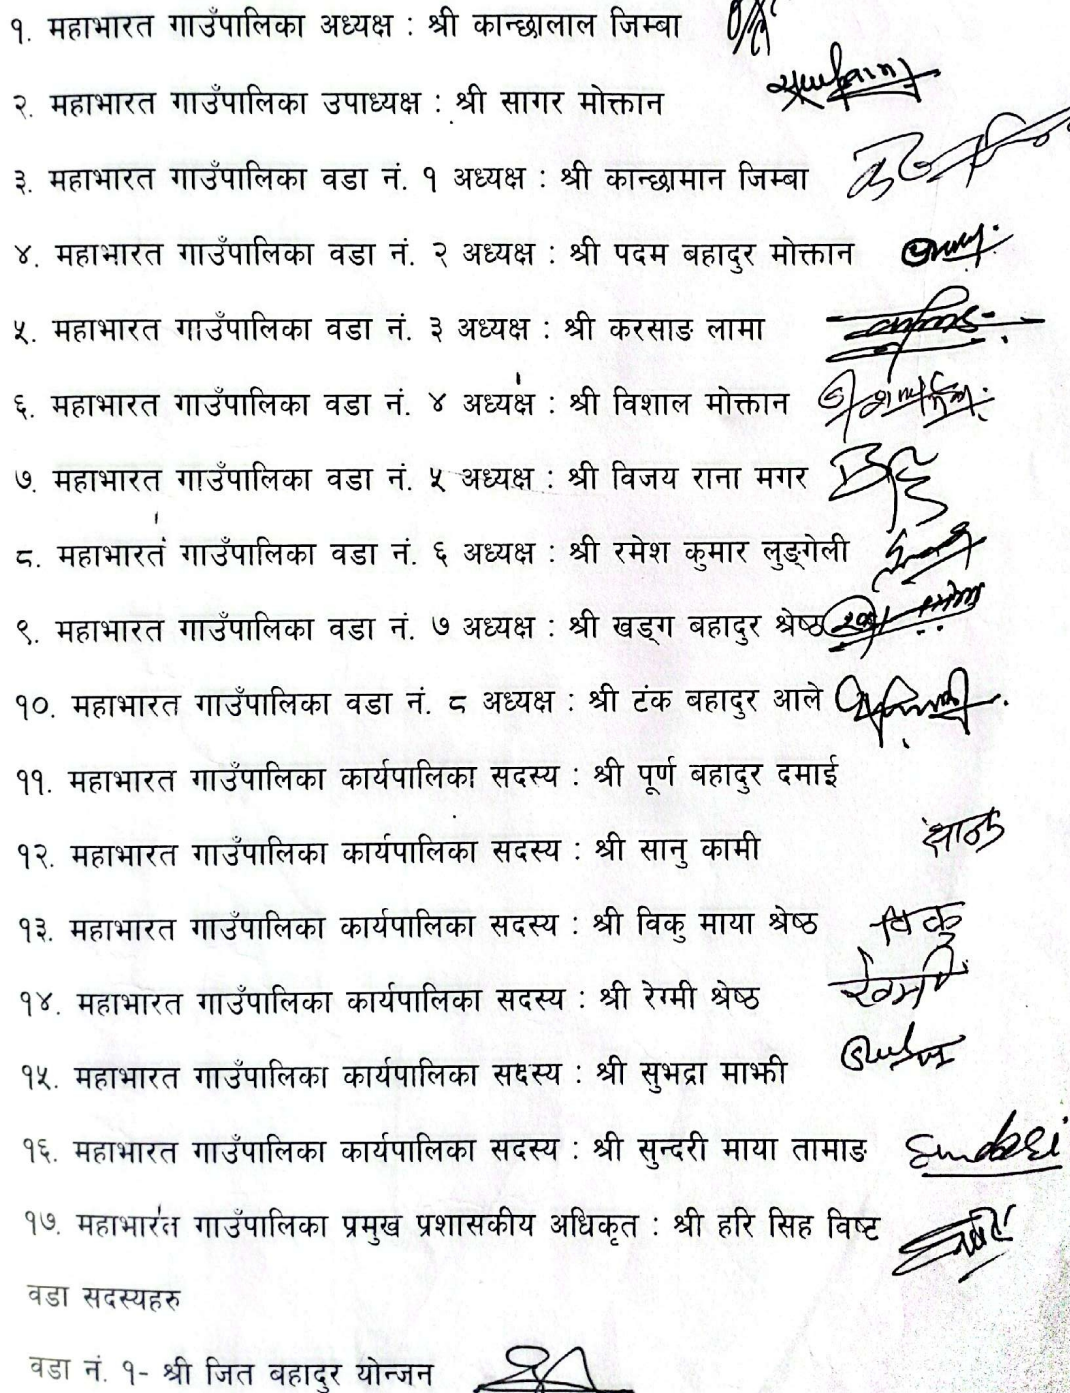 १. महाभारत गाउँपालिका अध्यक्ष : श्री कान्छालाल जिम्बा
२. महाभारत गाउँपालिका उपाध्यक्ष : श्री सागर मोक्तान
३. महाभारत गाउँपालिका वडा नं. १ अध्यक्ष : श्री कान्छामान जिम्बा
४. महाभारत गाउँपालिका वडा नं. २ अध्यक्ष : श्री पदम बहादुर मोक्तान
५. महाभारत गाउँपालिका वडा नं. ३ अध्यक्ष : श्री करसाङ लामा
६. महाभारत गाउँपालिका वडा नं. ४ अध्यक्ष : श्री विशाल मोक्तान
७. महाभारत गाउँपालिका वडा नं. ५ अध्यक्ष : श्री विजय राना मगर
८. महाभारत गाउँपालिका वडा नं. ६ अध्यक्ष : श्री रमेश कुमार लुङ्गेली
९. महाभारत गाउँपालिका वडा नं. ७ अध्यक्ष : श्री खड्ग बहादुर श्रेष्ठ
१०. महाभारत गाउँपालिका वडा नं. ८ अध्यक्ष : श्री टंक बहादुर आले
११. महाभारत गाउँपालिका कार्यपालिका सदस्य : श्री पूर्ण बहादुर दमाई
१२. महाभारत गाउँपालिका कार्यपालिका सदस्य : श्री सानु कामी
१३. महाभारत गाउँपालिका कार्यपालिका सदस्य : श्री विकु माया श्रेष्ठ विकु
१४. महाभारत गाउँपालिका कार्यपालिका सदस्य : श्री रेग्मी श्रेष्ठ रेग्मी
१५. महाभारत गाउँपालिका कार्यपालिका सदस्य : श्री सुभद्रा माझी
१६. महाभारत गाउँपालिका कार्यपालिका सदस्य : श्री सुन्दरी माया तामाङ Sundari
१७. महाभारत गाउँपालिका प्रमुख प्रशासकीय अधिकृत : श्री हरि सिह विष्ट
वडा सदस्यहरु
वडा नं. १- श्री जित बहादुर योन्जन